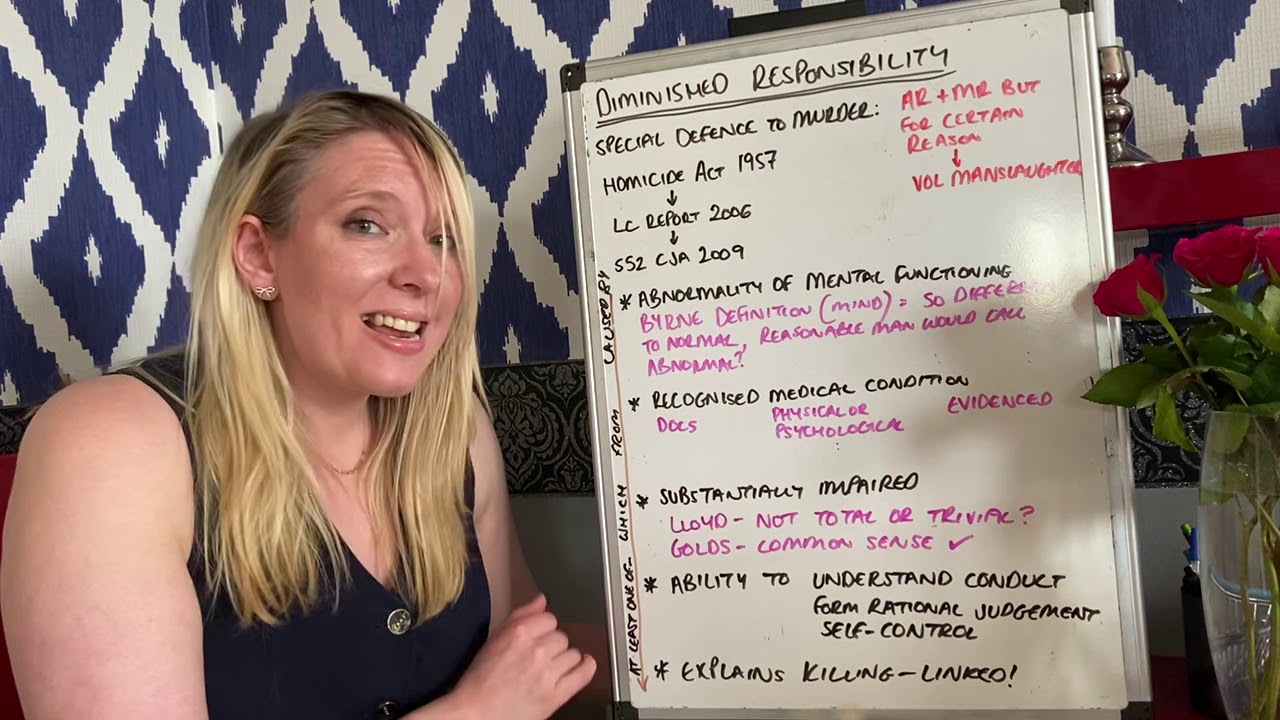 DIMINISHED RESPONSIBILITY
SPECIAL DEFENCE TO MURDER:
AR + MR BUT
FOR CERTAIN
REASON
↓
VOL MANSLAUGHTER
HOMICIDE ACT 1957
↓
LC REPORT 2006
↓
S52 CJA 2009
* ABNORMALITY OF MENTAL FUNCTIONING
BYRNE DEFINITION (MIND) = SO DIFFERENT
TO NORMAL, REASONABLE MAN WOULD CALL
ABNORMAL?
* RECOGNISED MEDICAL CONDITION
DOCS PHYSICAL OR EVIDENCED
PSYCHOLOGICAL
* SUBSTANTIALLY IMPAIRED
LLOYD - NOT TOTAL OR TRIVIAL?
GOLDS - COMMON SENSE ✓
* ABILITY TO UNDERSTAND CONDUCT
FORM RATIONAL JUDGEMENT
SELF-CONTROL
* EXPLAINS KILLING - LINKED!
AT LEAST ONE OF - WHICH FROM CAUSED BY